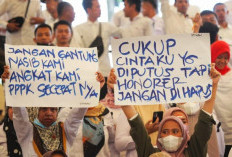 JANGAN GANTUNG
NASIB KAMI
ANGKAT KAMI
PPPK SECEPAT NYA
CUKUP
CINTAKU YG
DIPUTUS TAPI
HONORER
JANGAN DI HAPUS